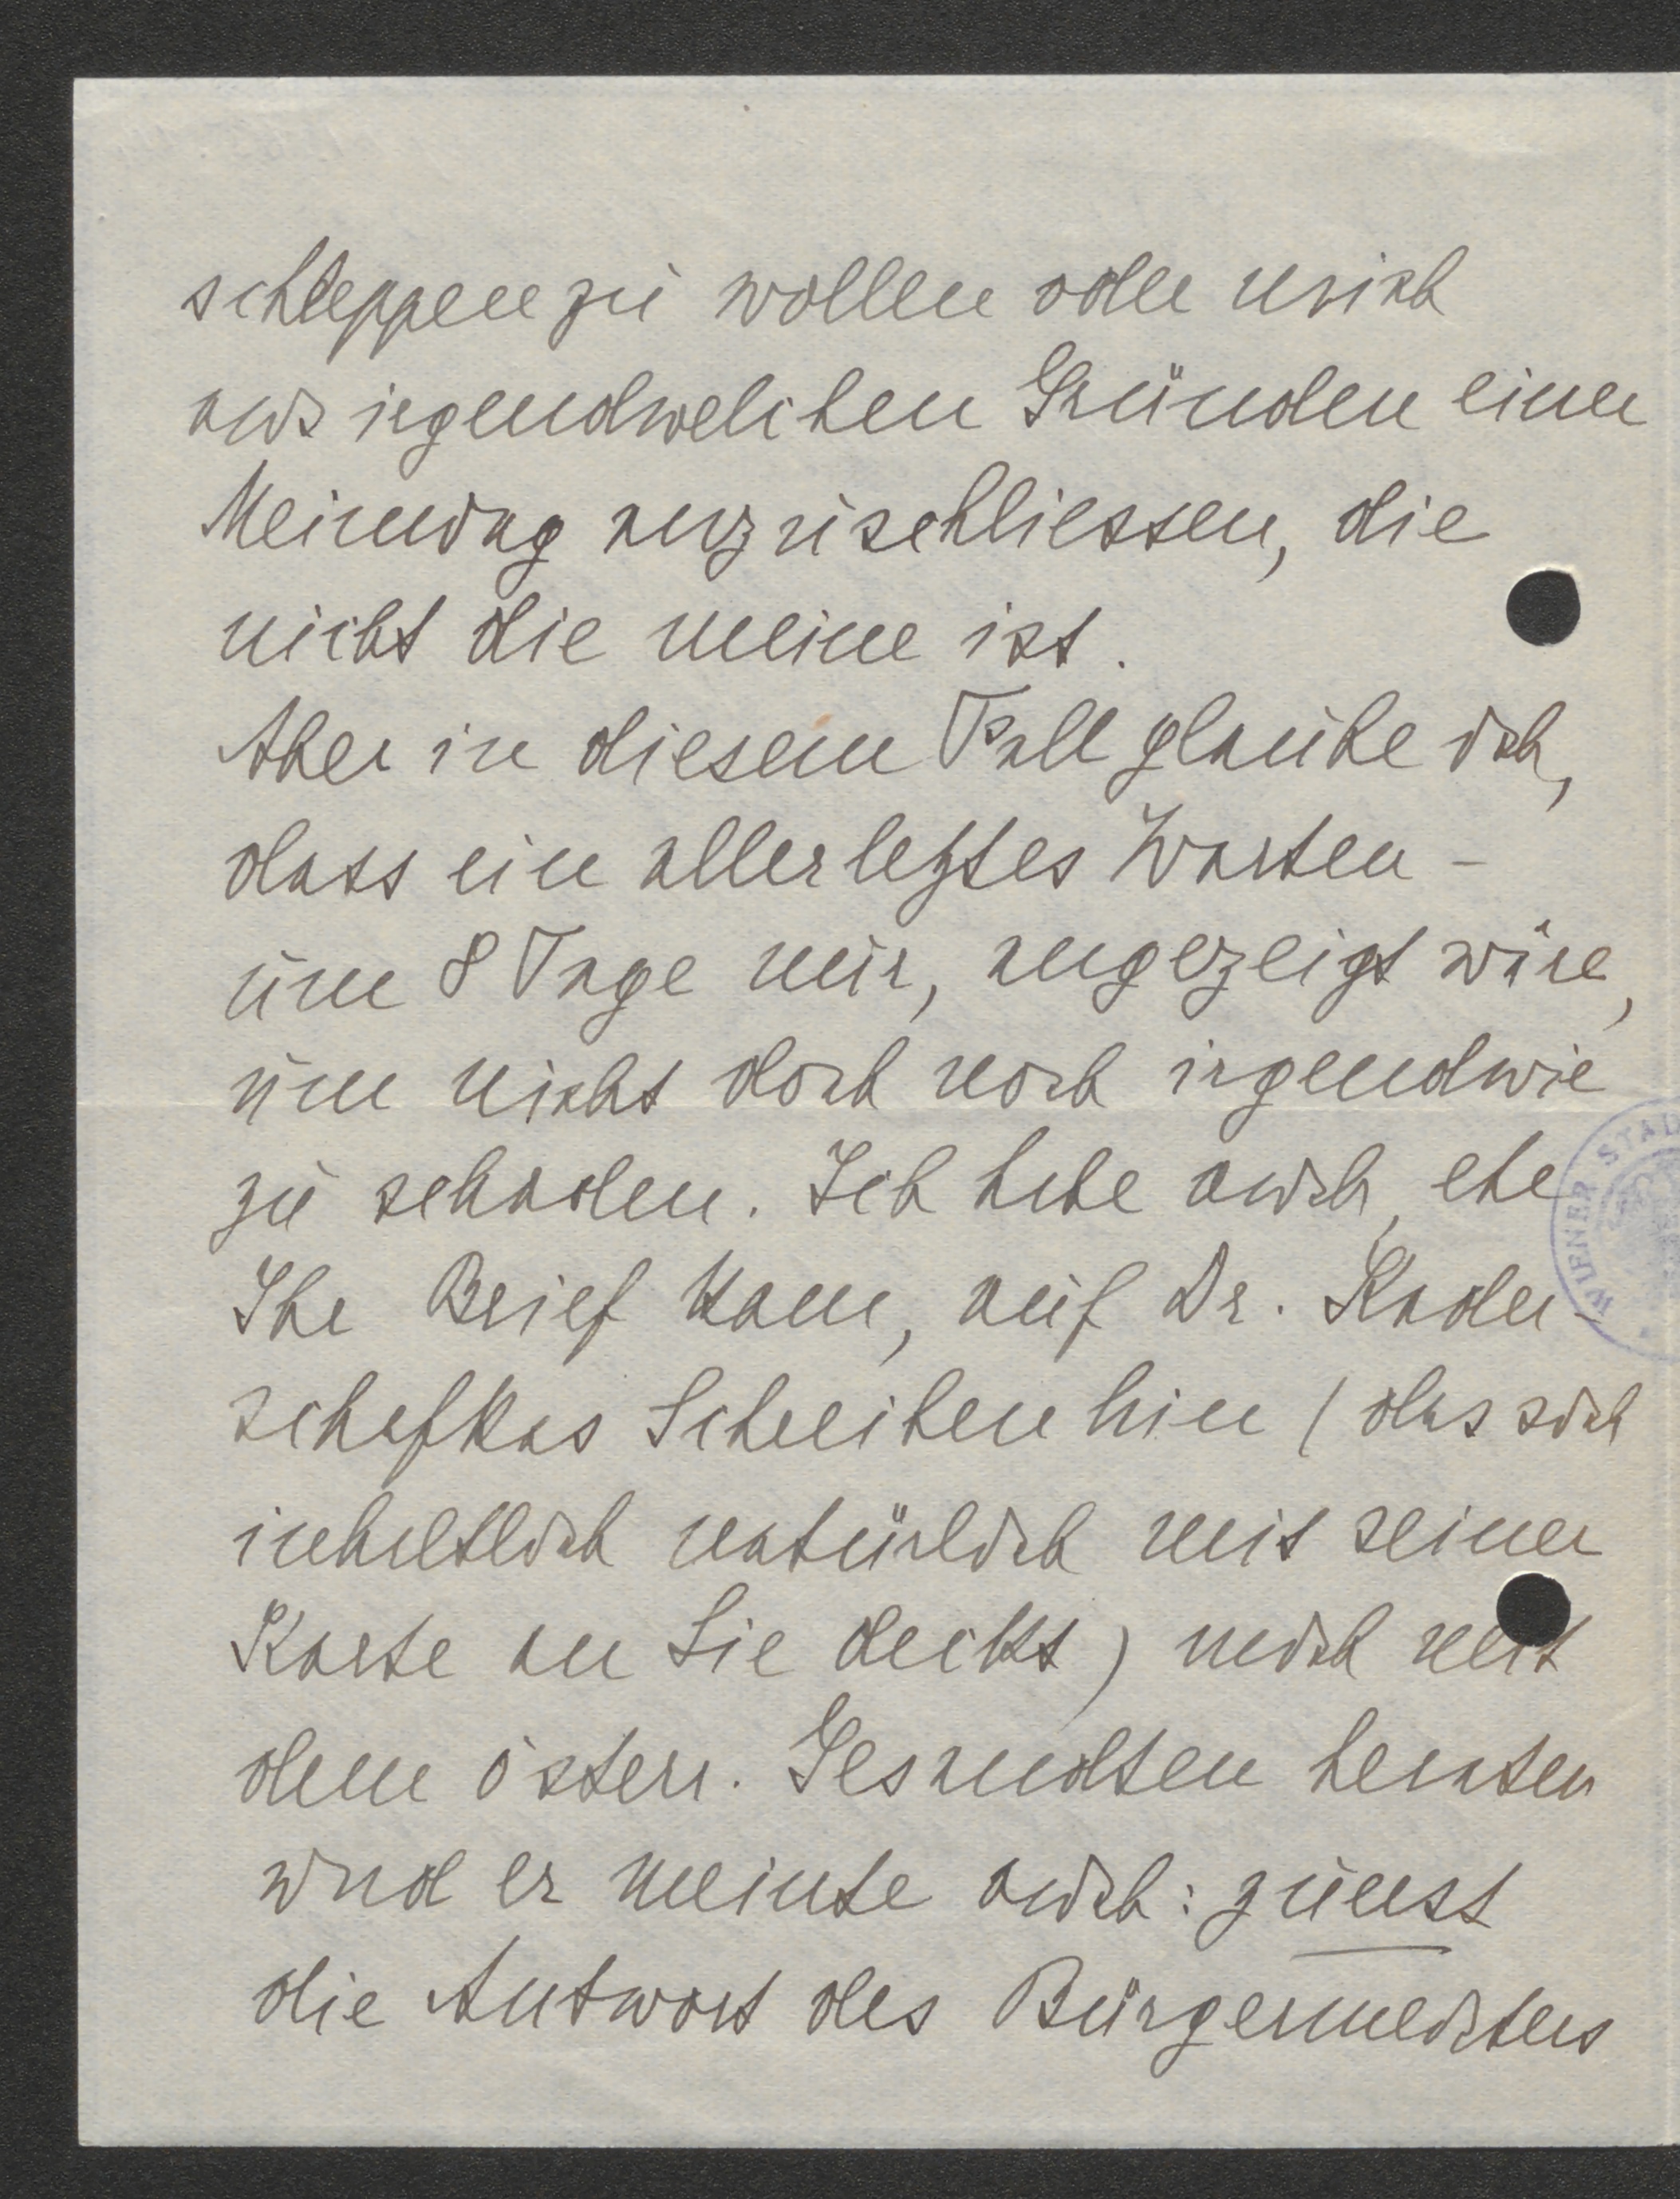 schleppen zu wollen oder mich
aus irgendwelchen Gründen einer
Meinung anzuschliessen, die
nicht die meine ist.
Aber in diesem Fall glaube ich,
dass ein allerletztes Warten –
um 8 Tage nur, angezeigt wäre,
um nicht doch noch irgendwie
zu schaden. Ich habe auch, ehe
Ihr Brief kam, auf Dr. Kader-
schafkas Schreiben hin (das sich
inhaltlich natürlich mit seiner
Karte an Sie deckt) mich mit
dem österr. Gesandten beraten
und er meinte auch: zuerst
die Antwort des Bürgermeisters
WIENER STA